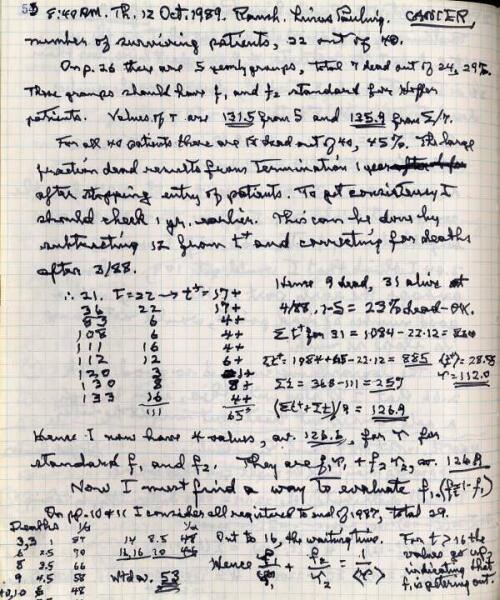 8:40 AM. Th. 12 Oct. 1989. Ranch. Linus Pauling. CANCER,
number of surviving patients, 22 out of 40.
On p. 26 there are 5 yearly groups, total 7 dead out of 24, 29%.
These groups should have f1 and f2 standard for Hoffer
patients. Values of τ are 131.5 from S and 135.9 from Σ/7.
For all 40 patients there are 18 dead out of 40, 45%. The large
fraction dead results from termination 1 year
after stopping entry of patients. To get consistency I
should check 1 yr. earlier. This can be done by
subtracting 12 from t+ and correcting for deaths
after 3/88.
∴ 21. t=22 → t+= 17+ Hence 9 dead, 31 alive at
36 22 17+ 4/88, 1-S = 23% dead - OK.
83 6 4+
108 6 4+ Σt+ for 31 = 1084-22·12 = 820
111 16 4+
112 12 6+ Σt+ = 1084+65-22·12 = 885 28.8
120 3 1+ τ = 112.0
130 8 8+ Σt = 368-111 = 257
133 16 4+
111 65+ (Σt+ + Σt)/9 = 126.9
Hence I now have 4 values, av. 126.6, for τ for
standard f1 and f2. They are f1τ1 + f2τ2, av. 126.6
Now I must find a way to evaluate f1, (f2=1-f1)
On pp. 10 & 11 I consider all registered to end of 1987, total 29.
Deaths
3,3 1 87 14 8.5 48 Out to 16, the waiting time. For t>16 the
6 2.5 70 16,16 20 46 values go up,
8 3.5 66 Hence f1/τ1 + f2/τ2 = 1/⟨τ⟩ indicating that
9 4.5 58 wtd av. 53 f1 is petering out.
10,10 6 48